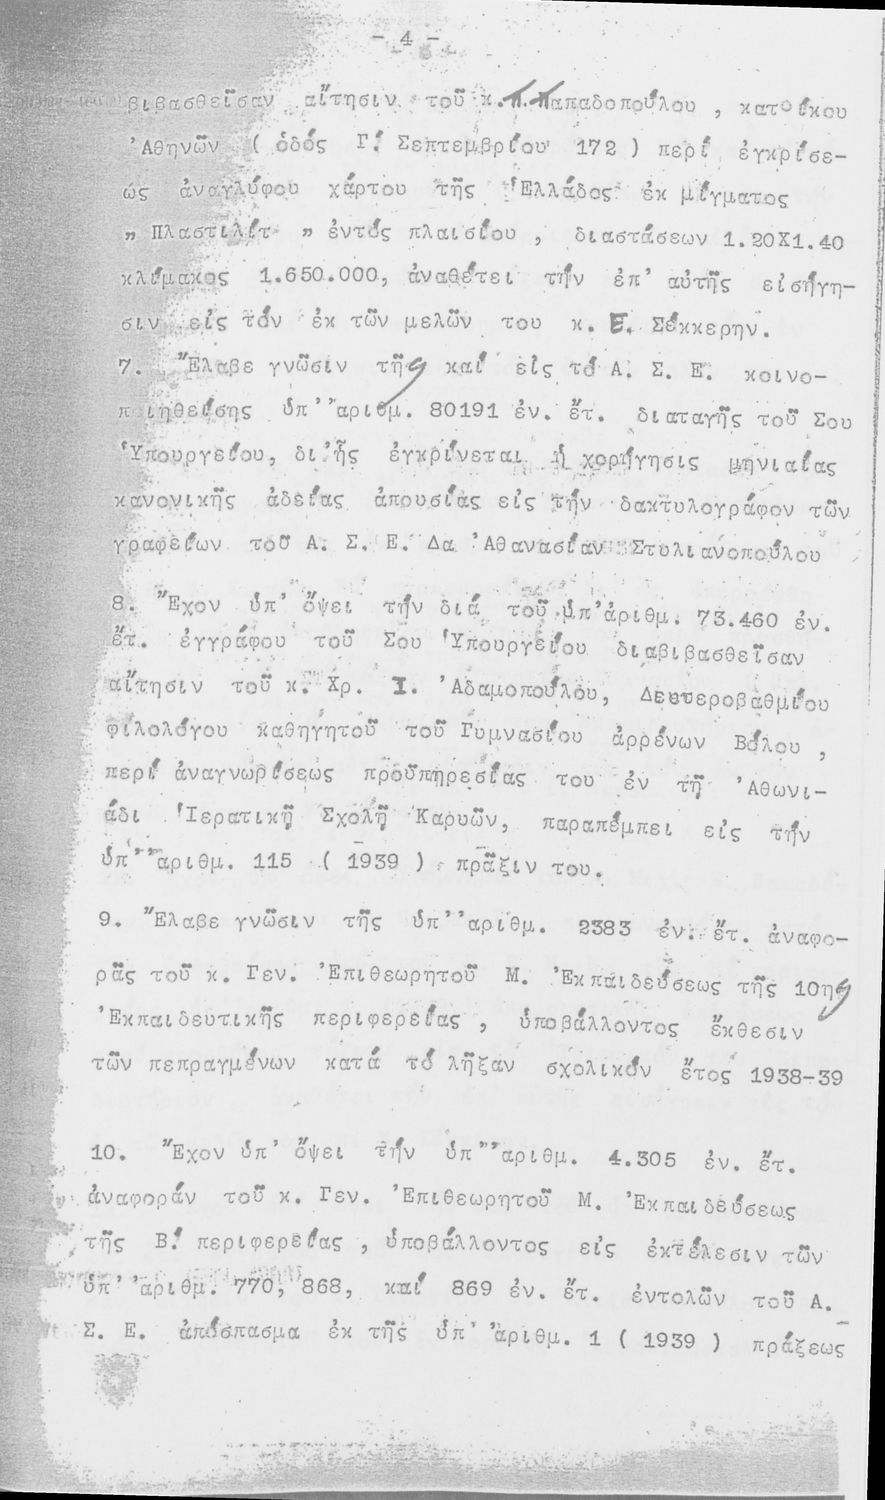 - 4 -
βιβασθεῖσαν αἴτησιν τοῦ κ. Π. Παπαδοπούλου , κατοίκου
'Αθηνῶν ( ὁδός Γ! Σεπτεμβρίου 172 ) περί ἐγκρίσε-
ώς ἀναγλύφου χάρτου τῆς Ἑλλάδος ἐκ μίγματος
" Πλαστιλίτ " ἐντός πλαισίου , διαστάσεων 1.20X1.40
κλίμακος 1.650.000, ἀναθέτει τήν ἐπ' αὐτῆς εἰσήγη-
σιν εἰς τόν ἐκ τῶν μελῶν του κ. Ε. Σίκκερην.
7. Ἔλαβε γνῶσιν τῆς καί εἰς τό Α. Σ. Ε. κοινο-
ποιηθείσης ὑπ' ἀριθμ. 80191 ἐν. ἔτ. διαταγῆς τοῦ Σου
Ὑπουργείου, δι'ἧς ἐγκρίνεται ἡ χορήγησις μηνιαίας
κανονικῆς ἀδείας ἀπουσίας εἰς τήν δακτυλογράφον τῶν
γραφείων τοῦ Α. Σ. Ε. Δα 'Αθανασίαν Στυλιανοπούλου
8. Ἔχον ὑπ' ὄψει τήν διά τοῦ ὑπ'ἀριθμ. 73.460 ἐν.
ἔτ. ἐγγράφου τοῦ Σου Ὑπουργείου διαβιβασθεῖσαν
αἴτησιν τοῦ κ. Χρ. Ι. 'Αδαμοπούλου, Δευτεροβαθμίου
φιλολόγου καθηγητοῦ τοῦ Γυμνασίου ἀρρένων Βόλου ,
περί ἀναγνωρίσεως προϋπηρεσίας του ἐν τῇ 'Αθωνι-
άδι Ἱερατικῇ Σχολῇ Καρυῶν, παραπέμπει εἰς τήν
ὑπ' ἀριθμ. 115 ( 1939 ) πρᾶξιν του.
9. Ἔλαβε γνῶσιν τῆς ὑπ' ἀριθμ. 2383 ἐν. ἔτ. ἀναφο-
ρᾶς τοῦ κ. Γεν. 'Επιθεωρητοῦ Μ. 'Εκπαιδεύσεως τῆς 10ης
'Εκπαιδευτικῆς περιφερείας , ὑποβάλλοντος ἔκθεσιν
τῶν πεπραγμένων κατά τό λῆξαν σχολικόν ἔτος 1938-39
10. Ἔχον ὑπ' ὄψει τήν ὑπ' ἀριθμ. 4.305 ἐν. ἔτ.
ἀναφοράν τοῦ κ. Γεν. 'Επιθεωρητοῦ Μ. 'Εκπαιδεύσεως
τῆς Β! περιφερείας , ὑποβάλλοντος εἰς ἐκτέλεσιν τῶν
ὑπ' ἀριθμ. 770, 868, καί 869 ἐν. ἔτ. ἐντολῶν τοῦ Α.
Σ. Ε. ἀπόσπασμα ἐκ τῆς ὑπ' ἀριθμ. 1 ( 1939 ) πράξεως